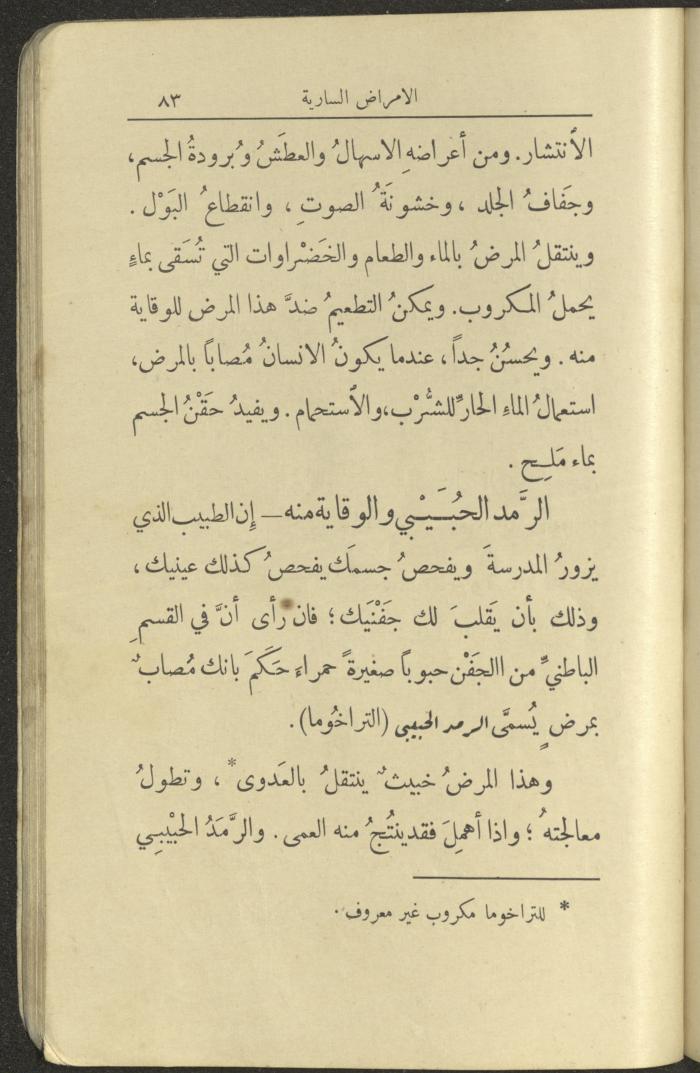 الامراض السارية ٨٣
الأنتشار. ومن أعراضهِ الاسهالُ والعطَشُ وبُرودةُ الجسم،
وجَفافُ الجلد ، وخشونَةُ الصوتِ ، وانقطاعُ البَوْل .
وينتقلُ المرضُ بالماء والطعام والخَضْراوات التي تُسَقى بماءٍ
يحملُ المكروب. ويمكنُ التطعيمُ ضدَّ هذا المرض للوقاية
منه . ويحسُنُ جداً ، عندما يكونُ الانسانُ مُصاباً بالمرض،
استعمالُ الماءِ الحارِّ للشُّرْب،والأستحمام . ويفيدُ حَقْنُ الجسم
بماء مَلِح .
الرَّمد الحُبَيْبي والوقاية منه — إن الطبيب الذي
يزورُ المدرسةَ ويفحصُ جسمَك يفحصُ كذلك عينيك ،
وذلك بأن يَقلبَ لك جَفْنَيك ؛ فان رأى أنَّ في القسمِ
الباطنيِّ من االجَفْن حبوباً صغيرةً حمراءَ حَكَمَ بانك مُصابٌ
بمرضٍ يُسمَّى الرمد الحبيبي (التراخُوما) .
وهذا المرضُ خبيثٌ ينتقلُ بالعَدوى* ، وتطولُ
معالجتهُ ؛ واذا أهمِلَ فقدينتُجُ منه العمى . والرَّمَدُ الحبيْبي
* للتراخوما مكروب غير معروف .